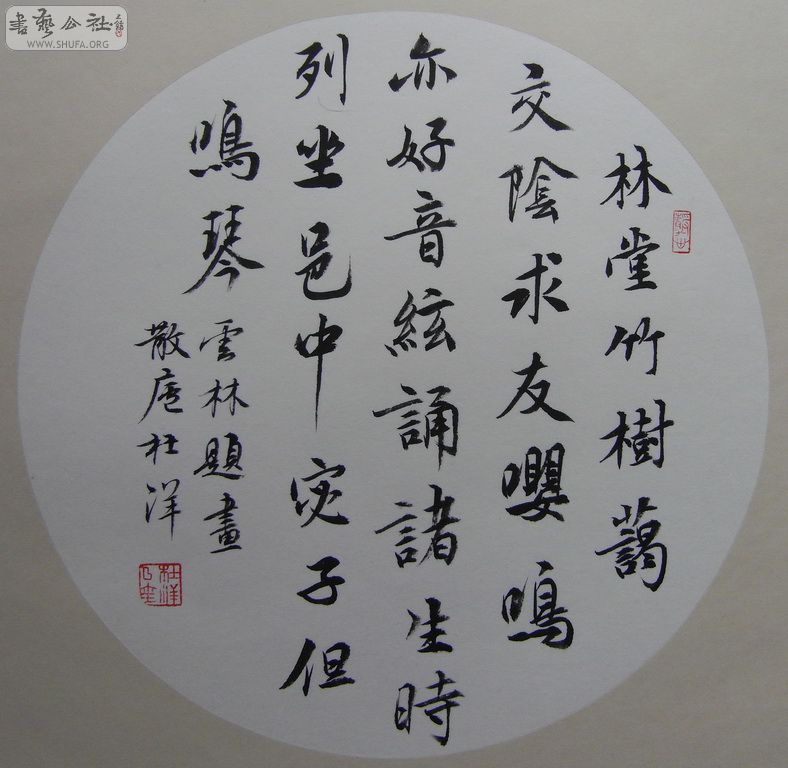 書藝公社
WWW.SHUFA.ORG
林堂竹樹藹
交陰求友嚶鳴
亦好音絃誦諸生時
列坐邑中宓子但
鳴琴
雲林題畫
散庵杜洋
杜洋